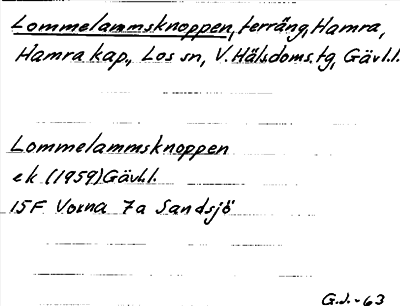 Lommelammsknoppen, terräng, Hamra,
Hamra kap., Los sn, V. Hälsdoms.tg, Gävl.l.
Lommelammsknoppen
ek (1959) Gävl.l.
15F Voxna 7a Sandsjö
G.J.-63